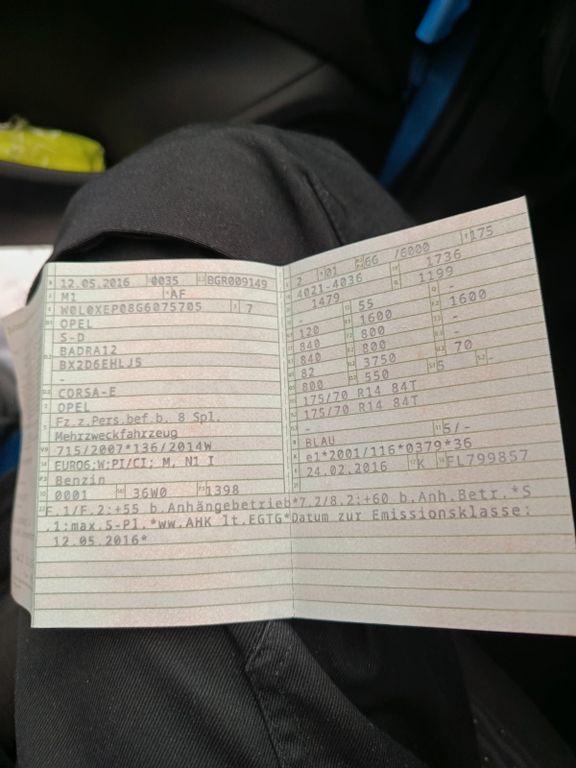 12.05.2016 0035 BGR009149
M1 AF
W0L0XEP08G6075705 7
OPEL
S-D
BADRA12
BX2D6EHLJ5
-
CORSA-E
OPEL
Fz.z.Pers.bef.b. 8 Spl.
Mehrzweckfahrzeug
715/2007*136/2014W
EURO6;W;PI/CI; M, N1 I
Benzin
0001 36W0 1398
2 01 66 /6000 175
4021-4036 1736
1479 1199
- 55 -
120 1600 1600
840 800 -
840 800 -
82 3750 70
800 550 5 -
175/70 R14 84T
175/70 R14 84T
-
BLAU 5/-
e1*2001/116*0379*36
24.02.2016 K FL799857
F.1/F.2:+55 b.Anhängebetrieb*7.2/8.2:+60 b.Anh.Betr.*S
.1:max.S-Pl.*ww.AHK lt.EGTG*Datum zur Emissionsklasse:
12.05.2016*